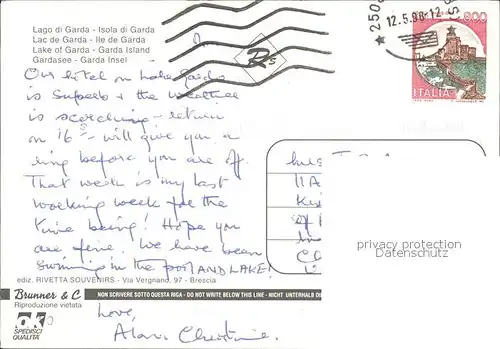 Lago di Garda - Isola di Garda
Lac de Garda - Ile de Garda
Lake of Garda - Garda Island
Gardasee - Garda Insel
Our hotel on Lake Garda
is superb + the weather
is scorching - return
on 16th - will give you a
ring before you are off.
That week is my last
working week for the
time being! Hope you
are fine. We have been
swimming in the pool AND LAKE!
Love,
Alan, Christine.
ediz. RIVETTA SOUVENIRS - Via Vergnano, 97 - Brescia
Brunner & C
Riproduzione vietata
NON SCRIVERE SOTTO QUESTA RIGA - DO NOT WRITE BELOW THIS LINE - NICHT UNTERHALB DI
OK
SPEDISCI
QUALITA'
12.5.98-12
800
ITALIA
privacy protection
Datenschutz